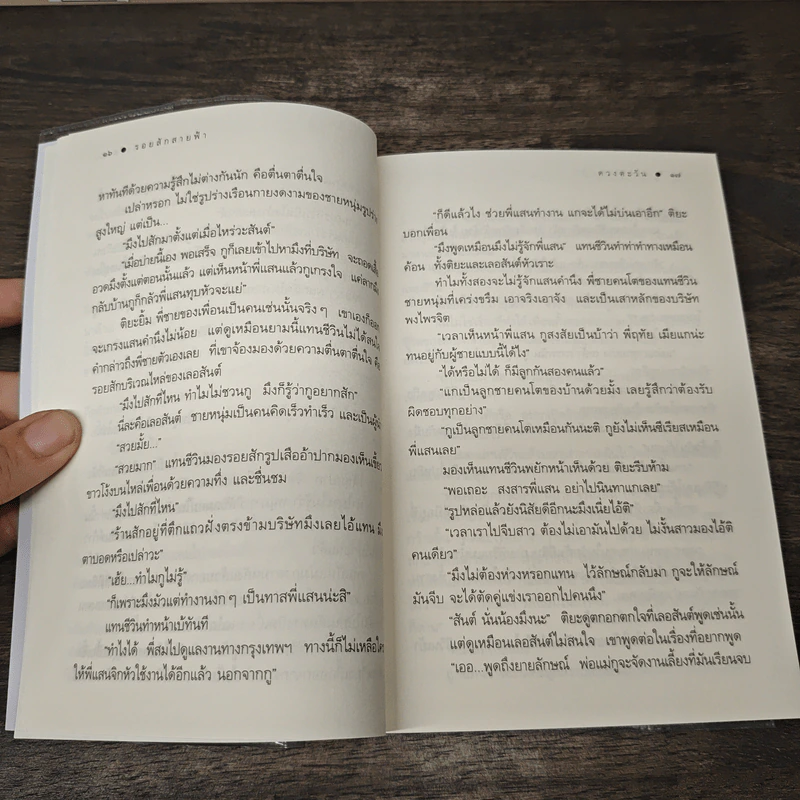 ๑๖ ● รอยสักสายฟ้า
หาทันทีด้วยความรู้สึกไม่ต่างกันนัก คือตื่นตาตื่นใจ
เปล่าหรอก ไม่ใช่รูปร่างเรือนกายงดงามของชายหนุ่มรูปร่าง
สูงใหญ่ แต่เป็น...
“มึงไปสักมาตั้งแต่เมื่อไหร่วะสันต์”
“เมื่อบ่ายนี้เอง พอเสร็จ กูก็เลยเข้าไปหามึงที่บริษัท จะถอดเสื้อ
อวดมึงตั้งแต่ตอนนั้นแล้ว แต่เห็นหน้าพี่แสนแล้วกูเกรงใจ แต่ลากมึง
กลับบ้านกูก็กลัวพี่แสนทุบหัวจะแย่”
ติยะยิ้ม พี่ชายของเพื่อนเป็นคนเช่นนั้นจริงๆ เขาเองก็ออก
จะเกรงแสนคำนึงไม่น้อย แต่ดูเหมือนยามนี้แทนชีวินไม่ได้สนใจ
คำกล่าวถึงพี่ชายตัวเองเลย ที่เขาจ้องมองด้วยความตื่นตาตื่นใจ คือ
รอยสักบริเวณไหล่ของเลอสันต์
“มึงไปสักที่ไหน ทำไมไม่ชวนกู มึงก็รู้ว่ากูอยากสัก”
นี่ละคือเลอสันต์ ชายหนุ่มเป็นคนคิดเร็วทำเร็ว และเป็นผู้นำ
“สวยมั้ย...”
“สวยมาก” แทนชีวินมองรอยสักรูปเสืออ้าปากมองเห็นเขี้ยว
ขาวโง้งบนไหล่เพื่อนด้วยความทึ่ง และชื่นชม
“มึงไปสักที่ไหน”
“ร้านสักอยู่ที่ตึกแถวฝั่งตรงข้ามบริษัทมึงเลยไอ้แทน มึง
ตาบอดหรือเปล่าวะ”
“เฮ้ย...ทำไมกูไม่รู้”
“ก็เพราะมึงมัวแต่ทำงานงกๆ เป็นทาสพี่แสนน่ะสิ”
แทนชีวินทำหน้าเบ้ทันที
“ทำไงได้ พี่สมไปดูแลงานทางกรุงเทพฯ ทางนี้ก็ไม่เหลือใคร
ให้พี่แสนจิกหัวใช้งานได้อีกแล้ว นอกจากกู”
ดวงตะวัน ● ๑๗
“ก็ดีแล้วไง ช่วยพี่แสนทำงาน แกจะได้ไม่บ่นเอาอีก” ติยะ
บอกเพื่อน
“มึงพูดเหมือนมึงไม่รู้จักพี่แสน” แทนชีวินทำท่าทำทางเหมือน
ค้อน ทั้งติยะและเลอสันต์หัวเราะ
ทำไมทั้งสองจะไม่รู้จักแสนคำนึง พี่ชายคนโตของแทนชีวิน
ชายหนุ่มที่เคร่งขรึม เอาจริงเอาจัง และเป็นเสาหลักของบริษัท
พงไพรจิต
“เวลาเห็นหน้าพี่แสน กูสงสัยเป็นบ้าว่า พี่ฤทัย เมียแกน่ะ
ทนอยู่กับผู้ชายแบบนี้ได้ไง”
“ได้หรือไม่ได้ ก็มีลูกกันสองคนแล้ว”
“แกเป็นลูกชายคนโตของบ้านด้วยมั้ง เลยรู้สึกว่าต้องรับ
ผิดชอบทุกอย่าง”
“กูเป็นลูกชายคนโตเหมือนกันนะติ กูยังไม่เห็นซีเรียสเหมือน
พี่แสนเลย”
มองเห็นแทนชีวินพยักหน้าเห็นด้วย ติยะรีบห้าม
“พอเถอะ สงสารพี่แสน อย่าไปนินทาแกเลย”
“รูปหล่อแล้วยังนิสัยดีอีกนะมึงเนี่ยไอ้ติ”
“เวลาเราไปจีบสาว ต้องไม่เอามันไปด้วย ไม่งั้นสาวมองไอ้ติ
คนเดียว”
“มึงไม่ต้องห่วงหรอกแทน ไว้ลักษณ์กลับมา กูจะให้ลักษณ์
มันจีบ จะได้ตัดคู่แข่งเราออกไปคนนึง”
“สันต์ นั่นน้องมึงนะ” ติยะดูตกอกตกใจที่เลอสันต์พูดเช่นนั้น
แต่ดูเหมือนเลอสันต์ไม่สนใจ เขาพูดต่อในเรื่องที่อยากพูด
“เออ...พูดถึงยายลักษณ์ พ่อแม่กูจะจัดงานเลี้ยงที่มันเรียนจบ